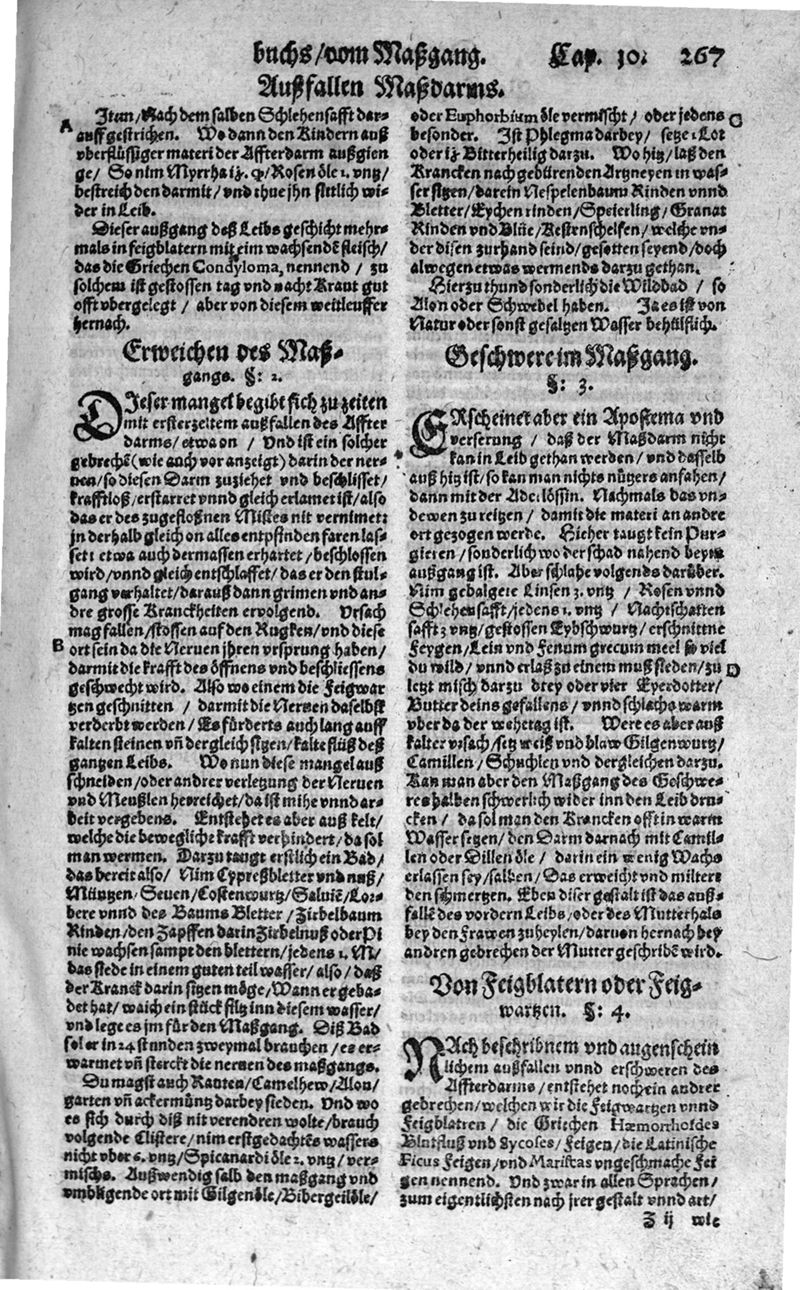 buchs/vom Maßgang. Cap. 10. 267
Außfallen Maßdarms.
A
Item/Nach dem salben Schlehensafft dar-
auff gestrichen. Wo dann den Kindern auß
vberflüssiger materi der Affterdarm außgien
ge/ So nim Myrrha Rosen öle 1. vntz/
bestreich den darmit/vnd thue jhn sittlich wi-
der in Leib.
Dieser außgang deß Leibs geschicht mehr-
mals in feigblatern mit eim wachsendē fleisch/
das die Griechen Condyloma, nennend / zu
solchem ist gestossen tag vnd nacht Kraut gut
offt vbergelegt / aber von diesem weitleuffer
hernach.
Erweichen des Maß-
gangs. §: 2.
DIeser mangel begibt sich zu zeiten
mit ersterzeltem außfallen des Affter
darms/etwa on / Vnd ist ein solcher
gebrechē (wie auch vor anzeigt) darin der ner-
uen/so diesen Darm zuziehet vnd beschlisset/
krafftloß/erstarret vnnd gleich erlamet ist/also
das er des zugefloßnen Mistes nit vernimet:
jn derhalb gleich on alles entpfinden faren las-
set: etwa auch dermassen erhartet/beschlossen
wird/vnnd gleich entschlaffet/das er den stul-
gang verhaltet/darauß dann grimen vnd an-
dre grosse Kranckheiten ervolgend. Vrsach
mag fallen/stossen auf den Rugken/vnd diese
B
ort sein da die Neruen jhren vrsprung haben/
darmit die krafft des öffnens vnd beschliessens
geschwecht wird. Also wo einem die Feigwar
tzen geschnitten / darmit die Neruen daselbst
verderbt werden/Es fürderts auch lang auff
kalten steinen vñ dergleich sitzen/kalte flüß deß
gantzen Leibs. Wo nun diese mangel auß
schneiden/oder andrer verletzung der Neruen
vnd Meußlen herreichet/da ist mihe vnnd ar-
beit vergebens. Entstehet es aber auß kelt/
welche die bewegliche krafft verhindert/da sol
man wermen. Darzu taugt erstlich ein Bad/
das bereit also/ Nim Cypreßbletter vnd nuß/
Müntzen/Seuen/Costenwurtz/Saluiē/Lor-
bere vnnd des Baums Bletter/Zirbelbaum
Rinden/den Zapffen darin Zirbelnuß oder Pi
nie wachsen sampt den blettern/jedens 1. M/
das siede in einem guten teil wasser/also/daß
der Kranck darin sitzen möge/Wann er geba-
det hat/waich ein stück filtz inn diesem wasser/
vnd lege es jm für den Maßgang. Diß Bad
sol er in 24 stunden zweymal brauchen/es er-
warmet vñ sterckt die neruen des maßgangs.
Du magst auch Rauten/Camelhew/Alon/
garten vñ ackermüntz darbey sieden. Vnd wo
es sich durch diß nit verendren wolte/brauch
volgende Clistere/nim erstgedachtēs wassers
nicht vber 6. vntz/Spicanardi öle 2. vntz/ver-
mischs. Außwendig salb den maßgang vnd
vmbligende ort mit Gilgenöle/Bibergeilöle/
oder Euphorbium öle vermischt/oder jedens C
besonder. Ist Phlegma darbey/ setze 1 Lot
oder Bitterheilig darzu. Wo hitz/laß den
Krancken nach gebürenden Artzneyen in was-
ser sitzen/darein Nespelenbaum Rinden vnnd
Bletter/Eychen rinden/Speierling/Granat
Rinden vnd Blüe/Kestenschelfen/welche vn-
der disen zurhand seind/gesotten seyend/doch
alwegen etwas wermends darzu gethan.
Hierzu thund sonderlich die Wildbad / so
Alon oder Schwebel haben. Ja es ist von
Natur oder sonst gesaltzen Wasser behülflich.
Geschwere im Maßgang.
§: 3.
ERscheinet aber ein Apostema vnd
verserung / daß der Maßdarm nicht
kan in Leib gethan werden/vnd dasselb
auß hitz ist/so kan man nichts nützers anfahen/
dann mit der Aderlössin. Nachmals das vn-
dewen zu reitzen / damit die materi an andre
ort gezogen werde. Hieher taugt kein Pur-
gieren/sonderlich wo der schad nahend beym
außgang ist. Aber schlahe volgends darüber.
Nim gebalgete Linsen 2. vntz / Rosen vnnd
Schlehensafft/jedens 1. vntz / Nachtschatten
safft 2 vntz/gestossen Eybschwurtz/erschnittne
Feygen/Lein vnd Fenum grecum meel so viel
du wild/ vnnd erlaß zu einem muß sieden/zu D
letzt misch darzu drey oder vier Eyerdotter/
Butter deins gefallens/vnnd schlachs warm
vber da der wehetag ist. Were es aber auß
kalter vrsach/setz weiß vnd blaw Gilgenwurtz/
Camillen/Stichlen vnd dergleichen darzu.
Kan man aber den Maßgang des Geschwe-
res halben schwerlich wider inn den Leib dru-
cken / da sol man den Krancken offt in warm
Wasser setzen/den Darm darnach mit Camil-
len oder Dillen öle / darin ein wenig Wachs
erlassen sey/salben/Das erweicht vnd miltert
den schmertzen. Eben diser gestalt ist das auß-
fallē des vordern Leibs/oder des Mutterhals
bey den Frawen zuheylen/daruon hernach bey
andren gebrechen der Mutter geschribē wird.
Von Feigblatern oder Feig-
wartzen. §: 4.
NAch beschribnem vnd augenschein
lichem außfallen vnnd erschweren des
Affterdarms/entstehet noch ein andrer
gebrechen/welchen wir die Feigwartzen vnnd
Feigblatren / die Griechen Hæmorrhoides
Blutfluß vnd Sycoses/Feigen/die Latinische
Ficus Feigen/vnd Mariscas vngeschmache Fei
gen nennend. Vnd zwar in allen Sprachen/
zum eigentlichsten nach jrer gestalt vnnd art/
Z ij wie